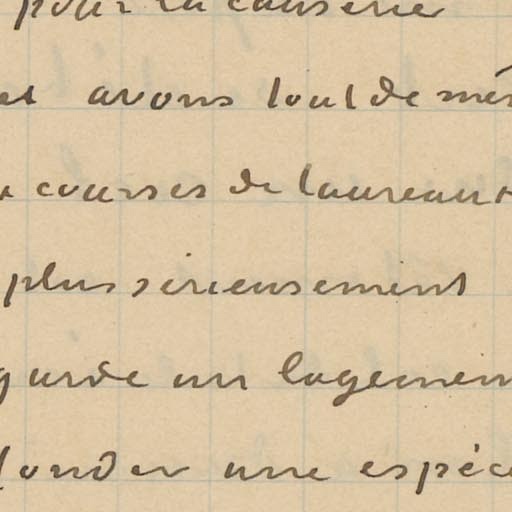 pour la causerie
avons tout de mêm
courses de taureaux
plus sérieusement
garde un logemen
fonder une espèce